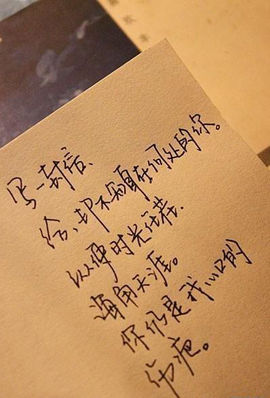 写一封信、
给、却不知身在何处的你。
纵使时光荏苒.
海角天涯。
你仍是我心口的
伤疤。